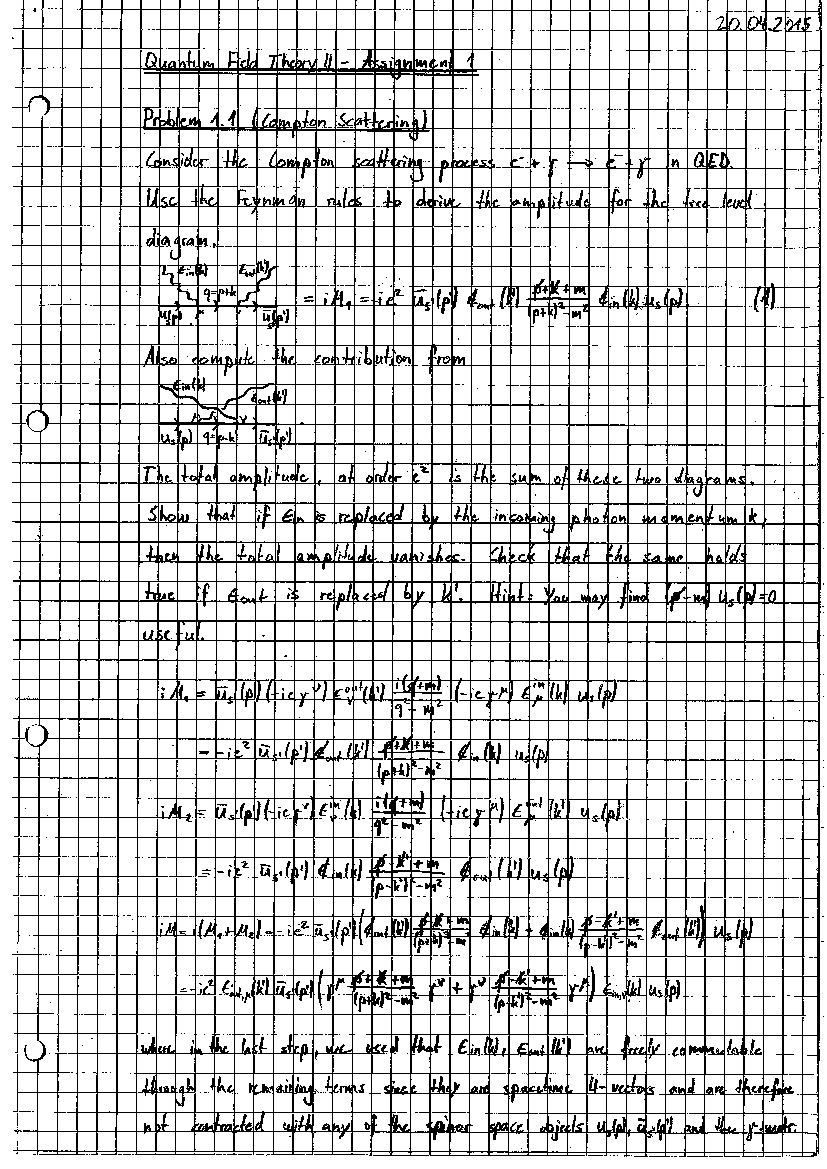 20.04.2015
Quantum Field Theory II - Assignment 1
Problem 1.1 (Compton Scattering)
Consider the Compton scattering process e⁻ + γ → e⁻ + γ in QED.
Use the Feynman rules to derive the amplitude for the tree level
diagram.
ε_in(k) ε_out(k')
q=p+k
u_s(p) μ ν ū_s'(p') = iM₁ = -ie² ū_s'(p') ε̸_out(k') (p̸+k̸+m)/((p+k)²-m²) ε̸_in(k) u_s(p) (1)
Also compute the contribution from
ε_in(k) ε_out(k')
μ ν
u_s(p) q=p-k' ū_s'(p')
The total amplitude, at order e² is the sum of these two diagrams.
Show that if ε_in is replaced by the incoming photon momentum k,
then the total amplitude vanishes. Check that the same holds
true if ε_out is replaced by k'. Hint: You may find (p̸-m) u_s(p)=0
useful.
iM₁ = ū_s'(p') (-ieγ^ν) ε_ν^out(k') i(q̸+m)/(q²-m²) (-ieγ^μ) ε_μ^in(k) u_s(p)
= -ie² ū_s'(p') ε̸_out(k') (p̸+k̸+m)/((p+k)²-m²) ε̸_in(k) u_s(p)
iM₂ = ū_s'(p') (-ieγ^ν) ε_ν^in(k) i(q̸+m)/(q²-m²) (-ieγ^μ) ε_μ^out(k') u_s(p)
= -ie² ū_s'(p') ε̸_in(k) (p̸-k̸'+m)/((p-k')²-m²) ε̸_out(k') u_s(p)
iM = i(M₁+M₂) = -ie² ū_s'(p') (ε̸_out(k') (p̸+k̸+m)/((p+k)²-m²) ε̸_in(k) + ε̸_in(k) (p̸-k̸'+m)/((p-k')²-m²) ε̸_out(k')) u_s(p)
= -ie² ε_out,μ(k') ū_s'(p') (γ^μ (p̸+k̸+m)/((p+k)²-m²) γ^ν + γ^ν (p̸-k̸'+m)/((p-k')²-m²) γ^μ) ε_in,ν(k) u_s(p)
where in the last step, we used that ε_in(k), ε_out(k') are freely commutable
through the remaining terms since they are spacetime 4-vectors and are therefore
not contracted with any of the spinor space objects u_s(p), ū_s'(p') and the γ-matr.